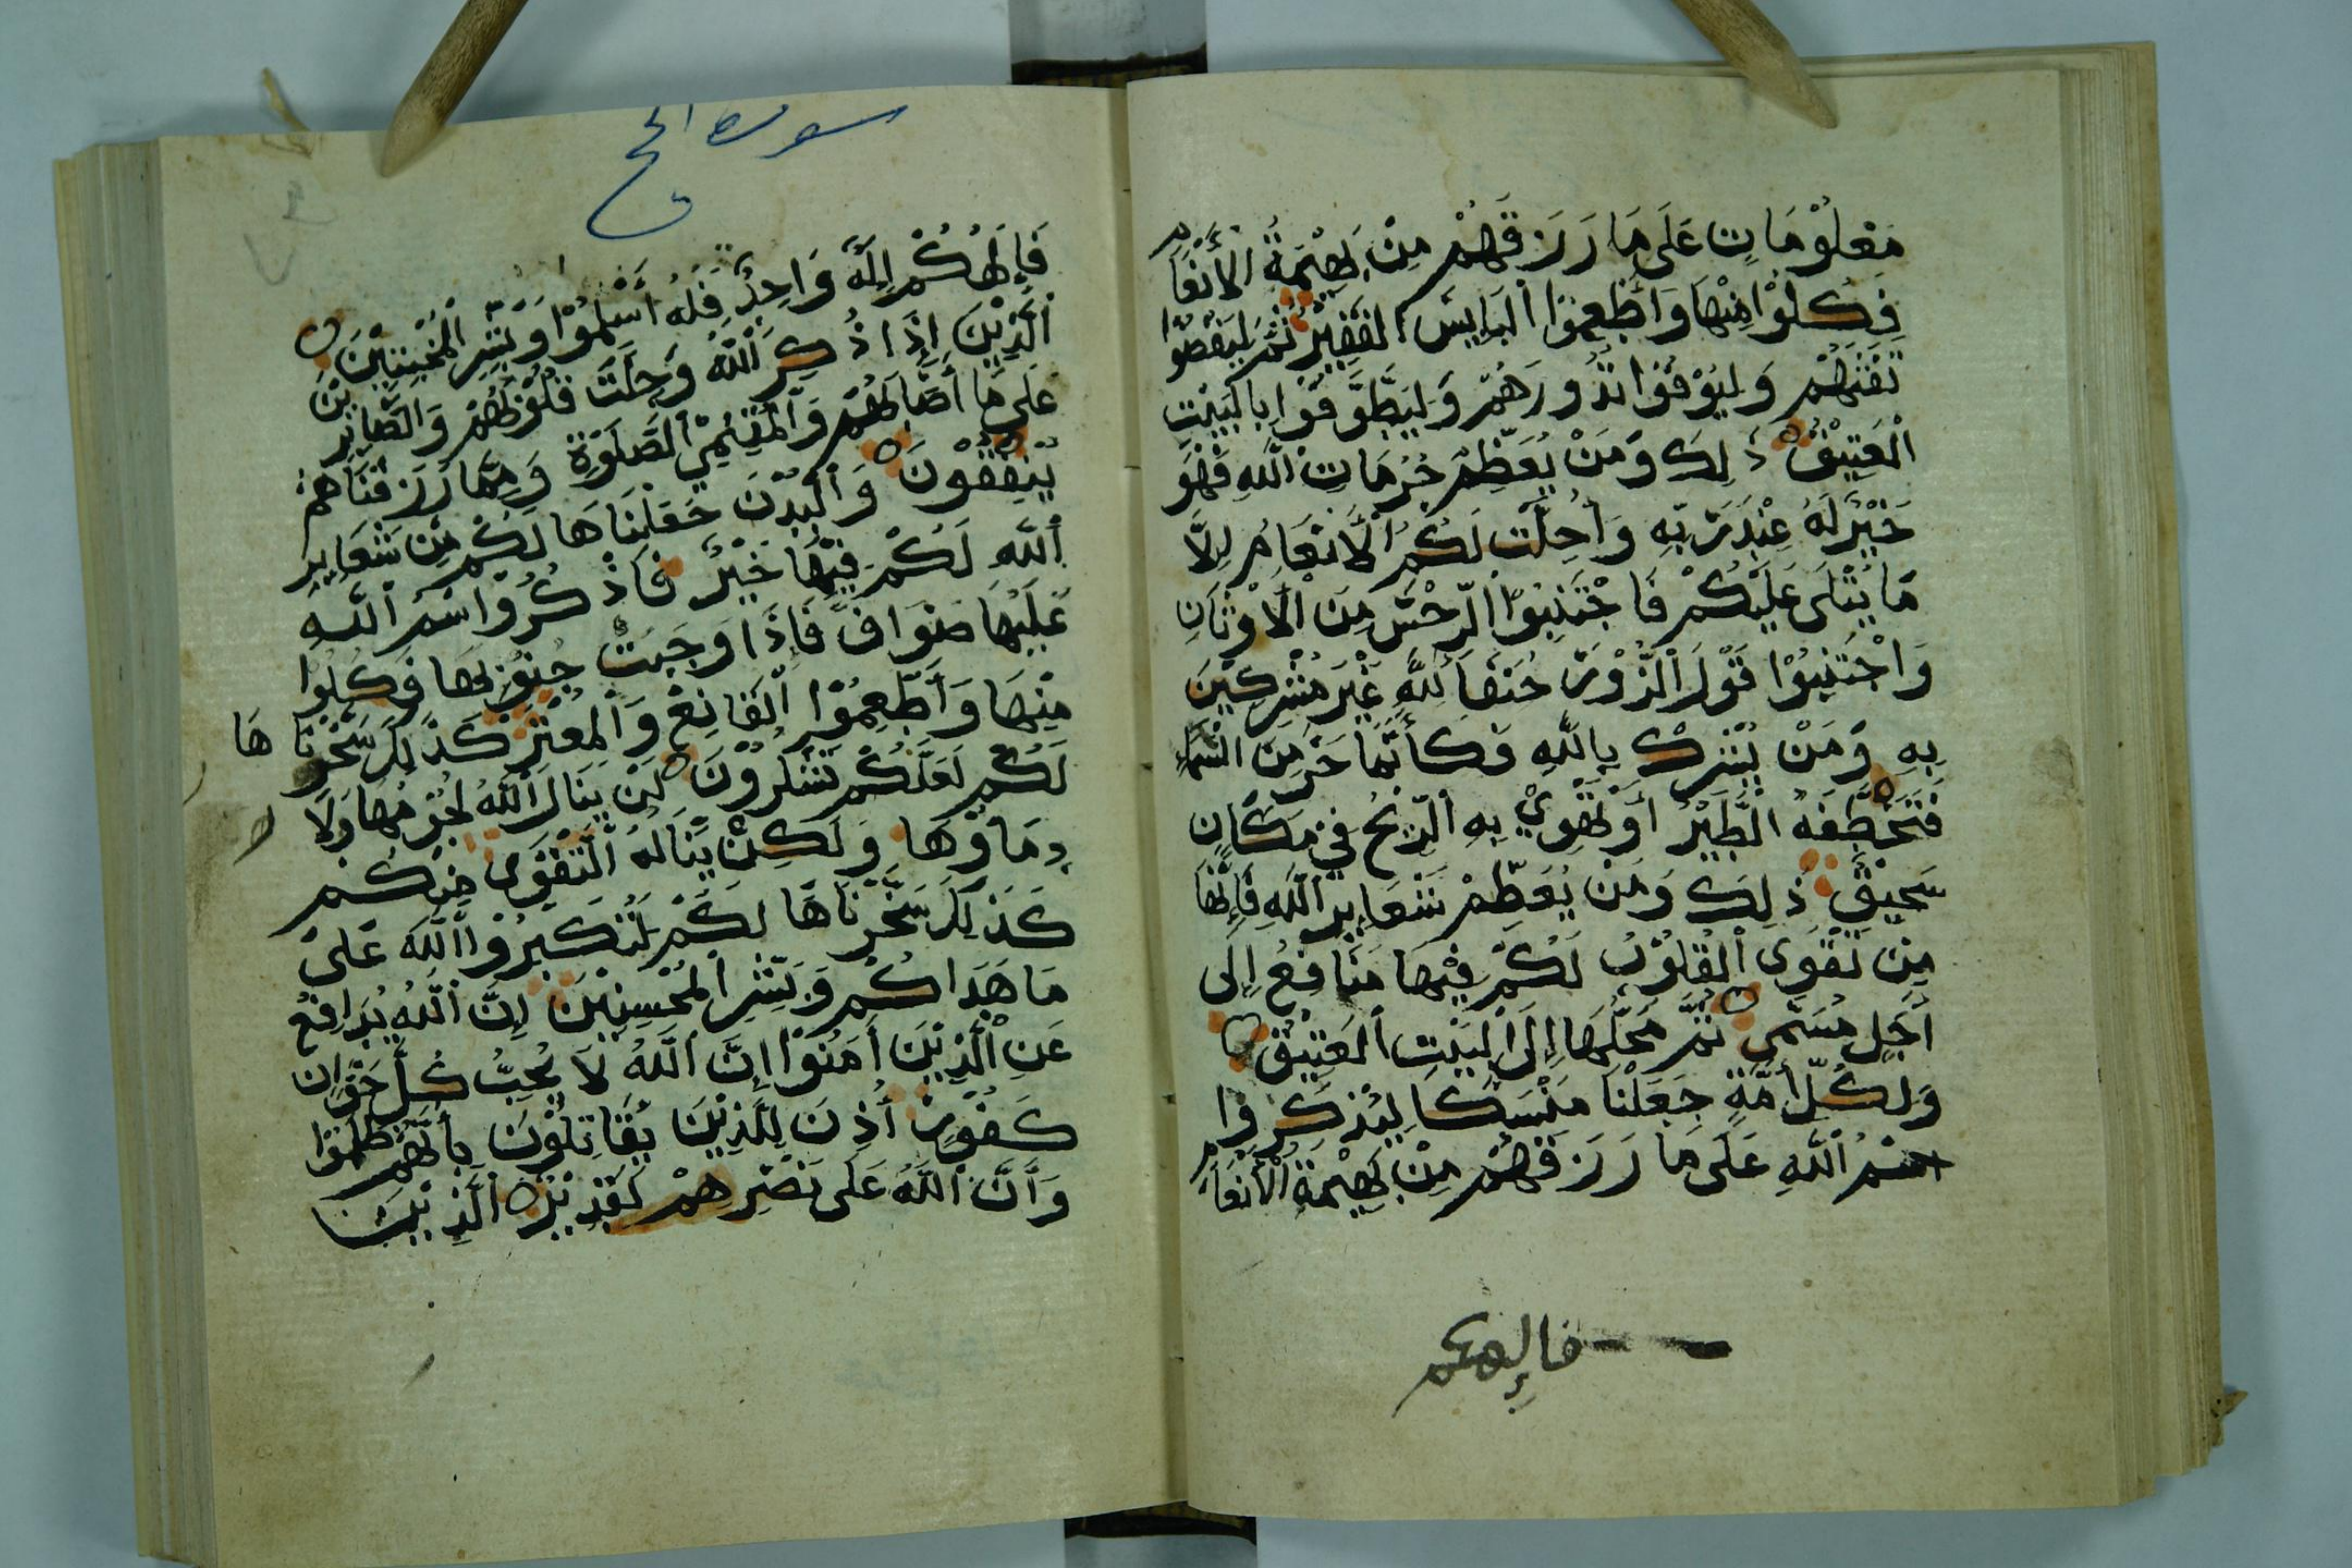 مَعْلُوْمَاتٍ عَلَى مَا رَزَقَهُمْ مِنْ بَهِيْمَةِ الْأَنْعَامِ
فَكُلُوْا مِنْهَا وَأَطْعِمُوْا الْبَايِسَ الْفَقِيْرَ ثُمَّ لْيَقْضُوْا
تَفَثَهُمْ وَلْيُوْفُوْا نُذُورَهُمْ وَلْيَطَّوَّفُوْا بِالْبَيْتِ
الْعَتِيْقِ ذَلِكَ وَمَنْ يُعَظِّمْ حُرُمَاتِ اللَّهِ فَهُوَ
خَيْرٌ لَهُ عِنْدَ رَبِّهِ وَأُحِلَّتْ لَكُمُ الْأَنْعَامُ إِلَّا
مَا يُتْلَى عَلَيْكُمْ فَاجْتَنِبُوْا الرِّجْسَ مِنَ الْأَوْثَانِ
وَاجْتَنِبُوْا قَوْلَ الزُّوْرِ حُنَفَاَ لِلَّهِ غَيْرَ مُشْرِكِيْنَ
بِهِ وَمَنْ يُشْرِكْ بِاللَّهِ فَكَأَنَّمَا خَرَّ مِنَ السَّمَاءِ
فَتَخْطَفُهُ الطَّيْرُ أَوْ تَهْوِيْ بِهِ الرِّيْحُ فِيْ مَكَانٍ
سَحِيْقٍ ذَلِكَ وَمَنْ يُعَظِّمْ شَعَايِرَ اللَّهِ فَإِنَّهَا
مِنْ تَقْوَى الْقُلُوْبِ لَكُمْ فِيْهَا مَنَافِعُ إِلَى
أَجَلٍ مُسَمًّى ثُمَّ مَحِلُّهَا إِلَى الْبَيْتِ الْعَتِيْقِ
وَلِكُلِّ أُمَّةٍ جَعَلْنَا مَنْسَكًا لِيَذْكُرُوا
اسْمَ اللَّهِ عَلَى مَا رَزَقَهُمْ مِنْ بَهِيْمَةِ الْأَنْعَامِ
فإلهكم
سورة الحج
فَإِلَهُكُمْ إِلَهٌ وَاحِدٌ فَلَهُ أَسْلِمُوْا وَبَشِّرِ الْمُخْبِتِيْنَ
الَّذِيْنَ إِذَا ذُكِرَ اللَّهُ وَجِلَتْ قُلُوْبُهُمْ وَالصَّابِرِيْنَ
عَلَى مَا أَصَابَهُمْ وَالْمُقِيْمِيْ الصَّلَوةِ وَمِمَّا رَزَقْنَاهُمْ
يُنْفِقُوْنَ وَالْبُدْنَ جَعَلْنَاهَا لَكُمْ مِنْ شَعَايِرِ
اللَّهِ لَكُمْ فِيْهَا خَيْرٌ فَاذْكُرُوْا اسْمَ اللَّهِ
عَلَيْهَا صَوَافَّ فَإِذَا وَجَبَتْ جُنُوْبُهَا فَكُلُوْا
مِنْهَا وَأَطْعِمُوْا الْقَانِعَ وَالْمُعْتَرَّ كَذَلِكَ سَخَّرْنَاهَا
لَكُمْ لَعَلَّكُمْ تَشْكُرُوْنَ لَنْ يَنَالَ اللَّهَ لُحُوْمُهَا وَلَا
دِمَاؤُهَا وَلَكِنْ يَنَالُهُ التَّقْوَى مِنْكُمْ
كَذَلِكَ سَخَّرْنَاهَا لَكُمْ لِتُكَبِّرُوْا اللَّهَ عَلَى
مَا هَدَاكُمْ وَبَشِّرِ الْمُحْسِنِيْنَ إِنَّ اللَّهَ يُدَافِعُ
عَنِ الَّذِيْنَ أَمَنُوْا إِنَّ اللَّهَ لَا يُحِبُّ كُلَّ خَوَّانٍ
كَفُوْرٍ أُذِنَ لِلَّذِيْنَ يُقَاتِلُوْنَ بِأَنَّهُمْ ظُلِمُوْا
وَأَنَّ اللَّهَ عَلَى نَصْرِهِمْ لَقَدِيْرٌ الَّذِيْنَ